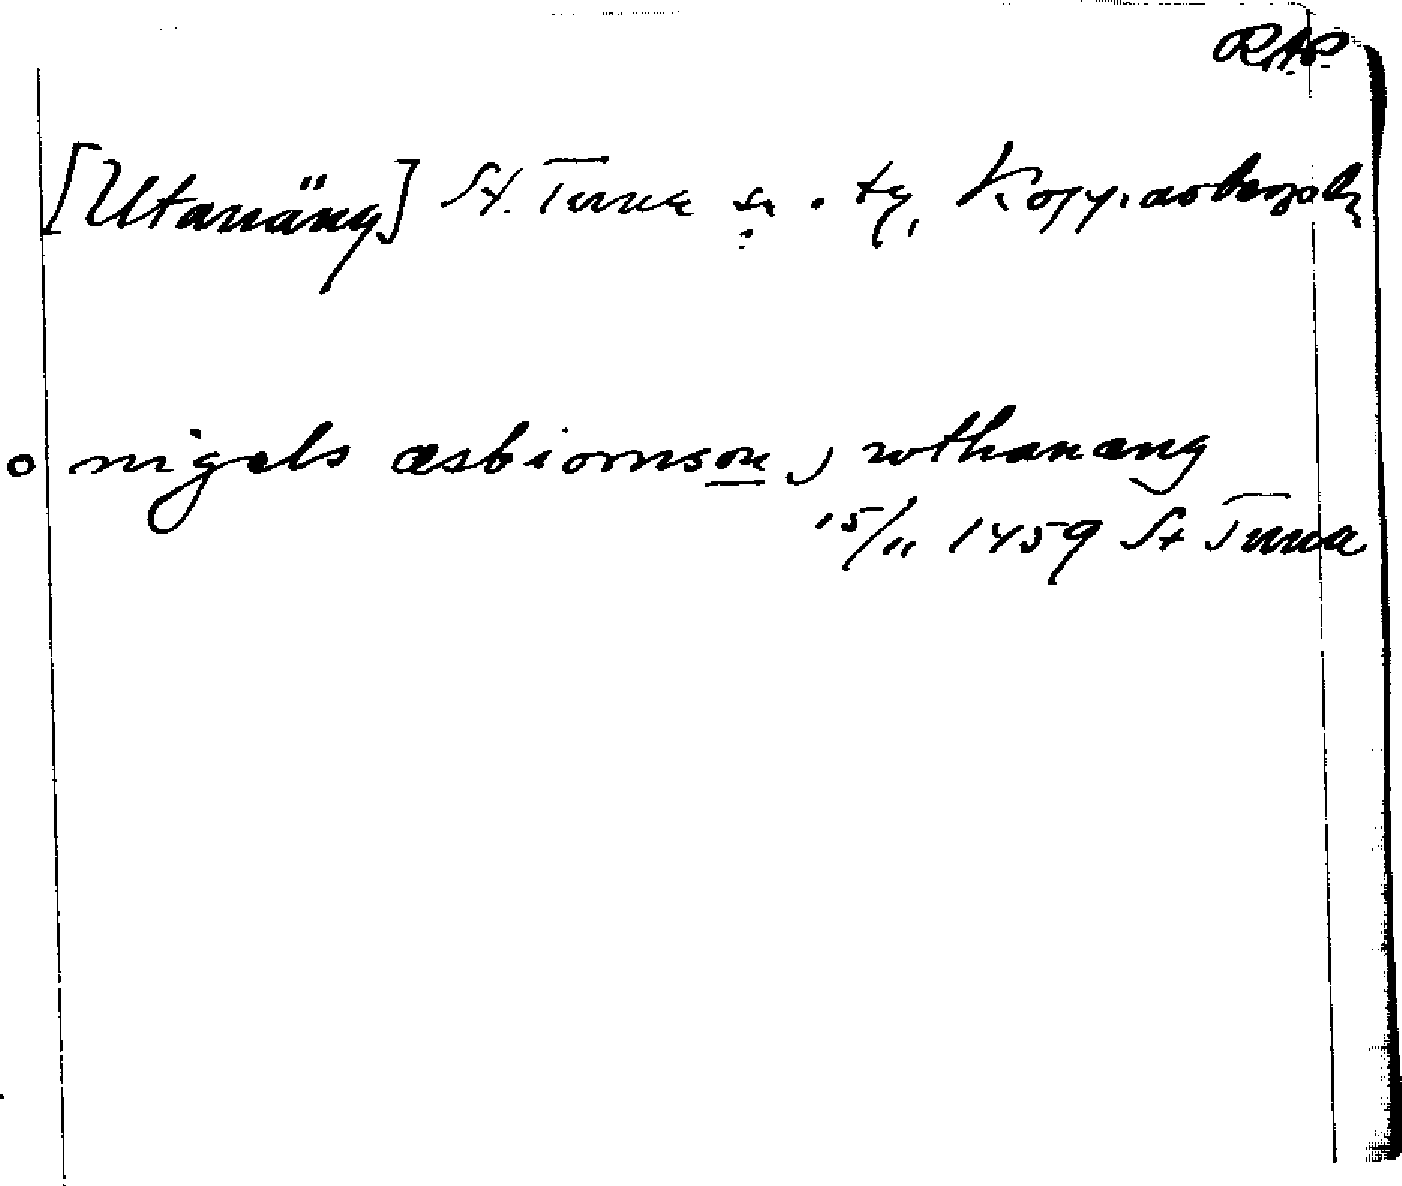 RAP
[Utanäng] St. Tuna sn. o. tg, Kopparbergs l
o nigels æsbiornson j wthanæng
15/11 1459 St Tuna